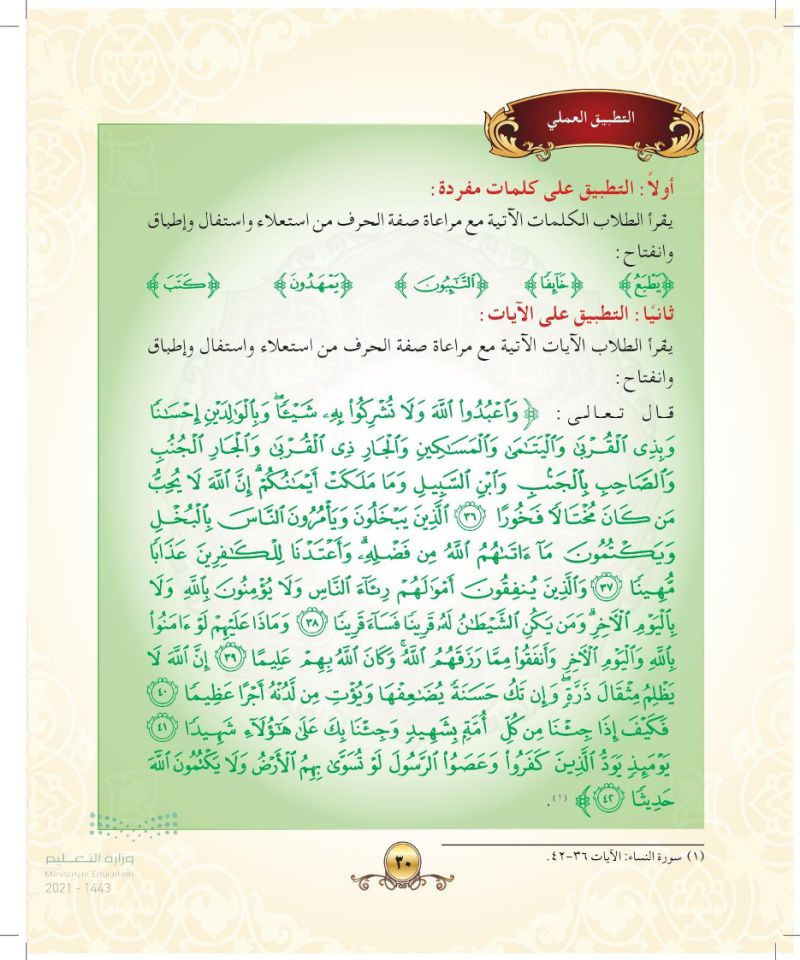 التطبيق العملي
أولاً: التطبيق على كلمات مفردة:
يقرأ الطلاب الكلمات الآتية مع مراعاة صفة الحرف من استعلاء واستفال وإطباق
وانفتاح:
﴿يَطْبَعُ﴾ ﴿خَآئِفًا﴾ ﴿ٱلتَّـٰٓئِبُونَ﴾ ﴿يَمْهَدُونَ﴾ ﴿كَتَبَ﴾
ثانيًا: التطبيق على الآيات:
يقرأ الطلاب الآيات الآتية مع مراعاة صفة الحرف من استعلاء واستفال وإطباق
وانفتاح:
قال تعالى: ﴿ وَٱعْبُدُوا۟ ٱللَّهَ وَلَا تُشْرِكُوا۟ بِهِۦ شَيْـًٔا ۖ وَبِٱلْوَٰلِدَيْنِ إِحْسَـٰنًا
وَبِذِى ٱلْقُرْبَىٰ وَٱلْيَتَـٰمَىٰ وَٱلْمَسَـٰكِينِ وَٱلْجَارِ ذِى ٱلْقُرْبَىٰ وَٱلْجَارِ ٱلْجُنُبِ
وَٱلصَّاحِبِ بِٱلْجَنۢبِ وَٱبْنِ ٱلسَّبِيلِ وَمَا مَلَكَتْ أَيْمَـٰنُكُمْ ۗ إِنَّ ٱللَّهَ لَا يُحِبُّ
مَن كَانَ مُخْتَالًا فَخُورًا ٣٦ ٱلَّذِينَ يَبْخَلُونَ وَيَأْمُرُونَ ٱلنَّاسَ بِٱلْبُخْلِ
وَيَكْتُمُونَ مَآ ءَاتَىٰهُمُ ٱللَّهُ مِن فَضْلِهِۦ ۗ وَأَعْتَدْنَا لِلْكَـٰفِرِينَ عَذَابًا
مُّهِينًا ٣٧ وَٱلَّذِينَ يُنفِقُونَ أَمْوَٰلَهُمْ رِئَآءَ ٱلنَّاسِ وَلَا يُؤْمِنُونَ بِٱللَّهِ وَلَا
بِٱلْيَوْمِ ٱلْـَٔاخِرِ ۗ وَمَن يَكُنِ ٱلشَّيْطَـٰنُ لَهُۥ قَرِينًا فَسَآءَ قَرِينًا ٣٨ وَمَاذَا عَلَيْهِمْ لَوْ ءَامَنُوا۟
بِٱللَّهِ وَٱلْيَوْمِ ٱلْـَٔاخِرِ وَأَنفَقُوا۟ مِمَّا رَزَقَهُمُ ٱللَّهُ ۚ وَكَانَ ٱللَّهُ بِهِمْ عَلِيمًا ٣٩ إِنَّ ٱللَّهَ لَا
يَظْلِمُ مِثْقَالَ ذَرَّةٍ ۖ وَإِن تَكُ حَسَنَةً يُضَـٰعِفْهَا وَيُؤْتِ مِن لَّدُنْهُ أَجْرًا عَظِيمًا ٤٠
فَكَيْفَ إِذَا جِئْنَا مِن كُلِّ أُمَّةٍۭ بِشَهِيدٍ وَجِئْنَا بِكَ عَلَىٰ هَـٰٓؤُلَآءِ شَهِيدًا ٤١
يَوْمَئِذٍ يَوَدُّ ٱلَّذِينَ كَفَرُوا۟ وَعَصَوُا۟ ٱلرَّسُولَ لَوْ تُسَوَّىٰ بِهِمُ ٱلْأَرْضُ وَلَا يَكْتُمُونَ ٱللَّهَ
حَدِيثًا ٤٢ ﴾ (١).
(١) سورة النساء: الآيات ٣٦-٤٢.
٣٠
وزارة التعليم
Ministry of Education
2021 - 1443